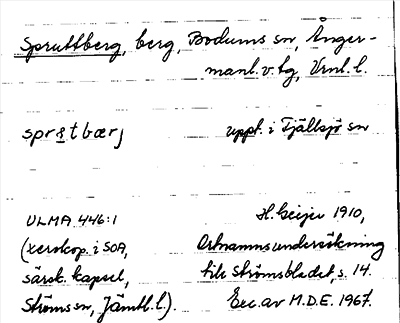 Spruttberg, berg, Bodums sn, Ånger-
manl. v. tg, Vrnl. l.
sprₔtbærj uppt. i Fjällsjö sn
ULMA 446:1
(xerokop. i SOA,
särsk. kapsel,
Ströms sn, Jämtl. l.).
H. Geijer 1910,
Ortnamnsundersökning
till Strömsbladet, s. 14.
Exc. av M.D.E. 1967.